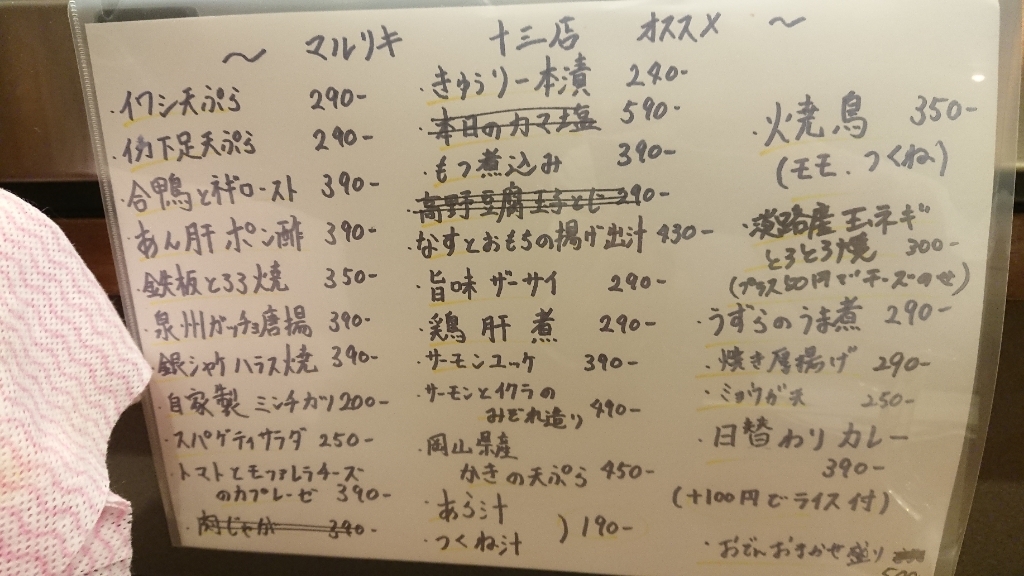 ～ マルリキ 十三店 オススメ ～
・イワシ天ぷら 290-
・下足天ぷら 290-
・合鴨と祥ロースト 390-
・あん肝ポン酢 390-
・鉄板とろろ焼 350-
・泉州ガッチョ唐揚 390-
・銀シャケハラス焼 390-
・自家製ミンチカツ 200-
・スパゲティサラダ 250-
・トマトとモッツァレラチーズ
のカプレーゼ 390-
・肉じゃが 390-
・きゅうり一本漬 240-
・本日のカマ塩 590-
・もつ煮込み 390-
・高野豆腐玉子とじ 290-
・なすとおもちの揚げ出汁 430-
・旨味ザーサイ 290-
・鶏肝煮 290-
・サーモンユッケ 390-
・サーモンとイクラの
みぞれ造り 490-
・岡山県産
かきの天ぷら 450-
・あら汁
・つくね汁 ) 190-
・焼鳥 350-
(モモ、つくね)
・淡路産玉ネギ
とろとろ焼 300-
(プラス50円でチーズのせ)
・うずらのうま煮 290-
・焼き厚揚げ 290-
・ミョウガ天 250-
・日替わりカレー
390-
(+100円でライス付)
・おでんおまかせ盛り
500